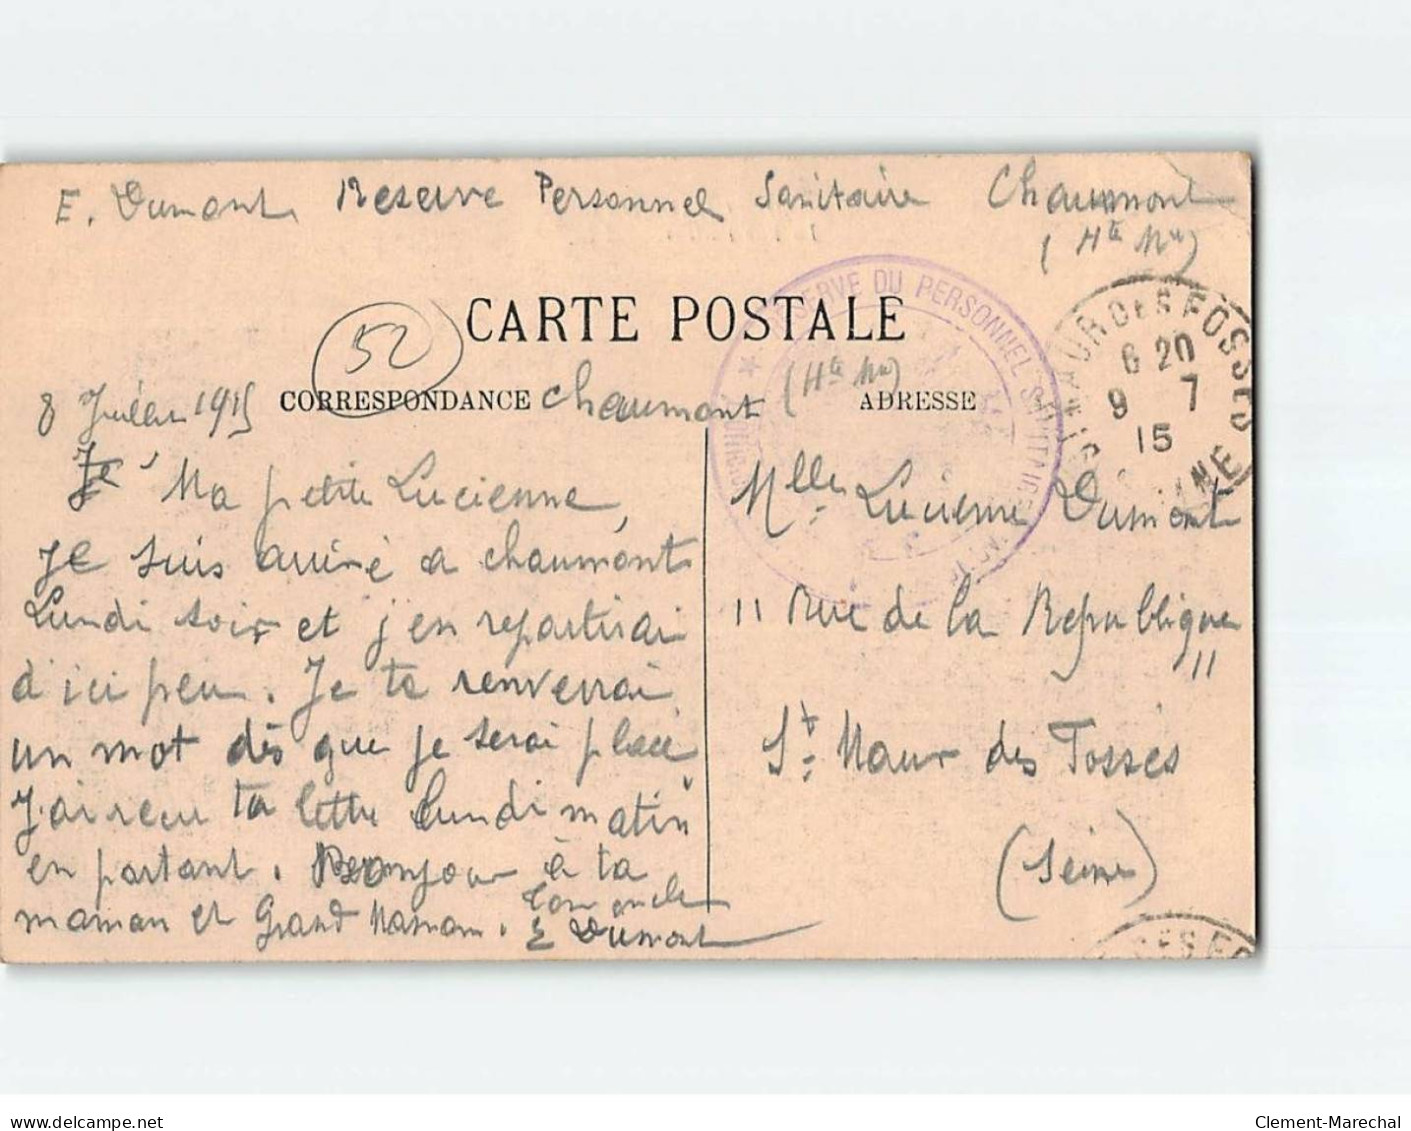 E. Dumont Reserve Personnel Sanitaire Chaumont
(Hte Mne)
CARTE POSTALE
52
RESERVE DU PERSONNEL SANITAIRE
ST MAUR DES FOSSES
6 20
9 7
15
SEINE
8 Juillet 1915 CORRESPONDANCE Chaumont (Hte Mne) ADRESSE
Je Ma petite Lucienne,
Je suis arrivé a chaumont
Lundi soir et j'en repartirai
d'ici peu. Je te renverrai
un mot dès que je serai placé
J'ai reçu ta lettre lundi matin
en partant. Bonjour à ta
maman et Grand Maman. Ton oncle
E Dumont
Mlle Lucienne Dumont
11 Rue de la Republique
11
St Maur des Fossés
(Seine)
DES FO
www.delcampe.net
Clement-Marechal